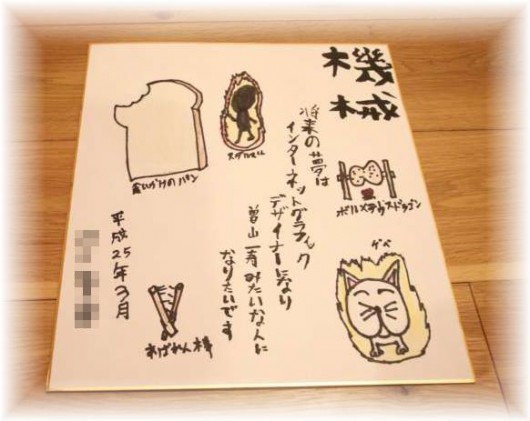 機械
将来の夢は
インターネットグラフィック
デザイナーになり
曽山一寿みたいな人に
なりたいです
ボルメテウスドラゴン
ゲベ
食いかけのパン
ねばれん棒
平成25年3月